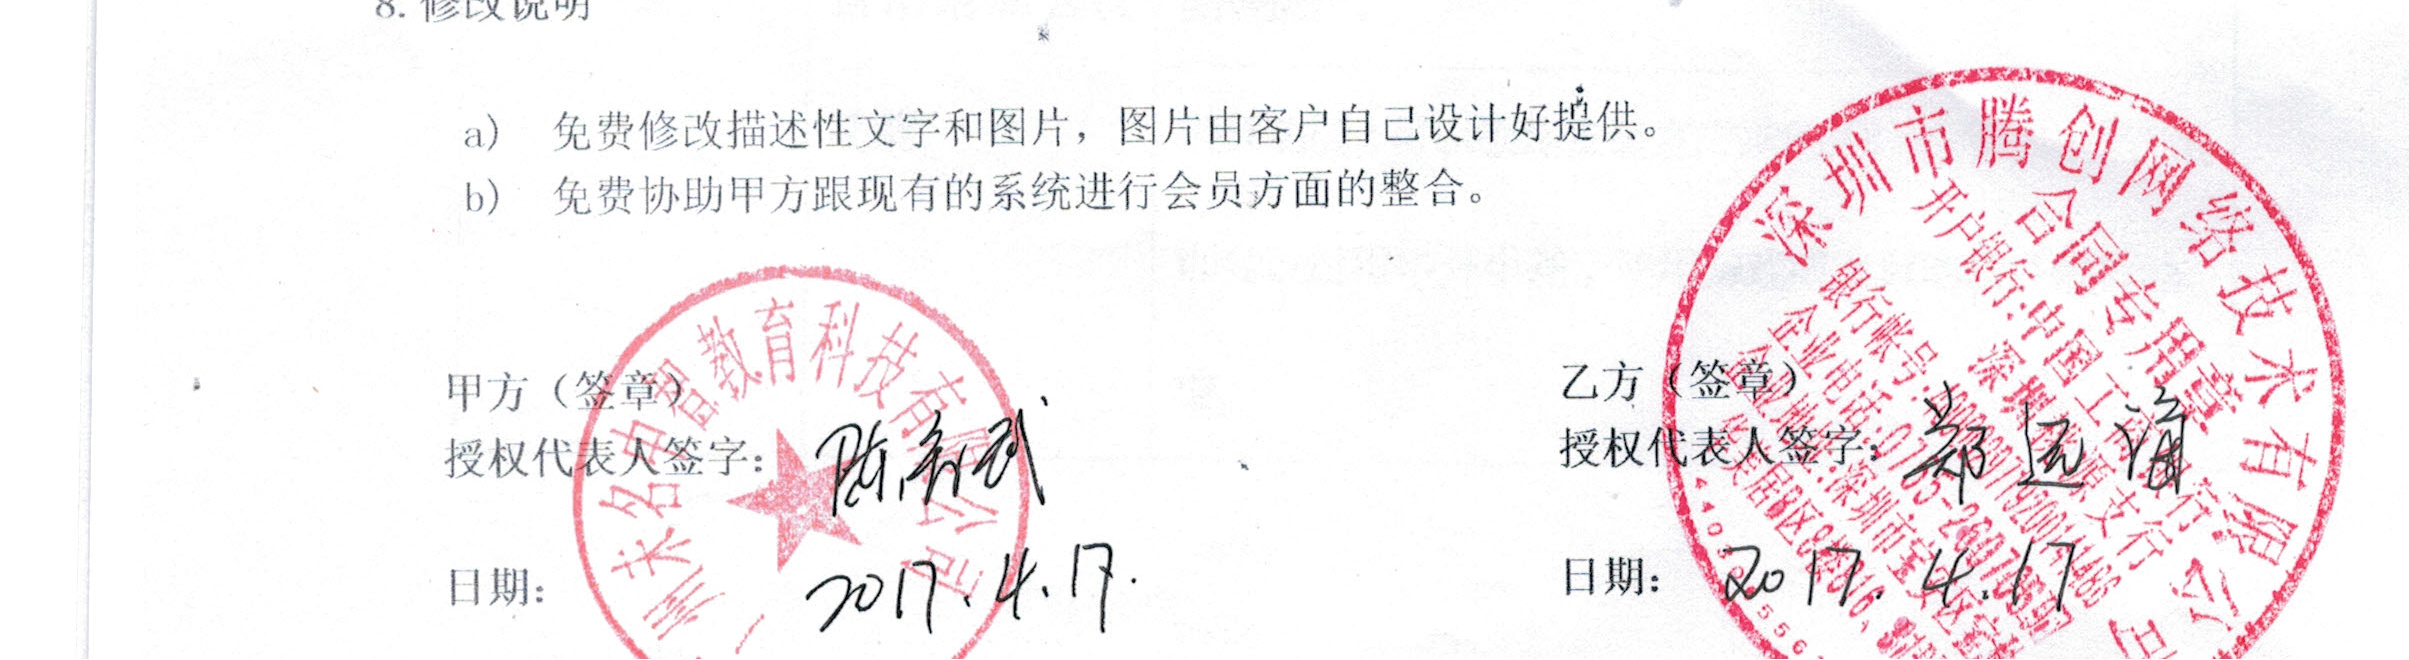 8. 修改说明
a) 免费修改描述性文字和图片，图片由客户自己设计好提供。
b) 免费协助甲方跟现有的系统进行会员方面的整合。
甲方（签章）
授权代表人签字：
日期：2017.4.17.
州未名中智教育科技有限公司
乙方（签章）
授权代表人签字：郑远
日期：2017.4.17
深圳市腾创网络技术有限公司
合同专用章
开户银行:中国工商银行
深圳
银行帐号:
企业电话:0755-
:深圳市宝安区